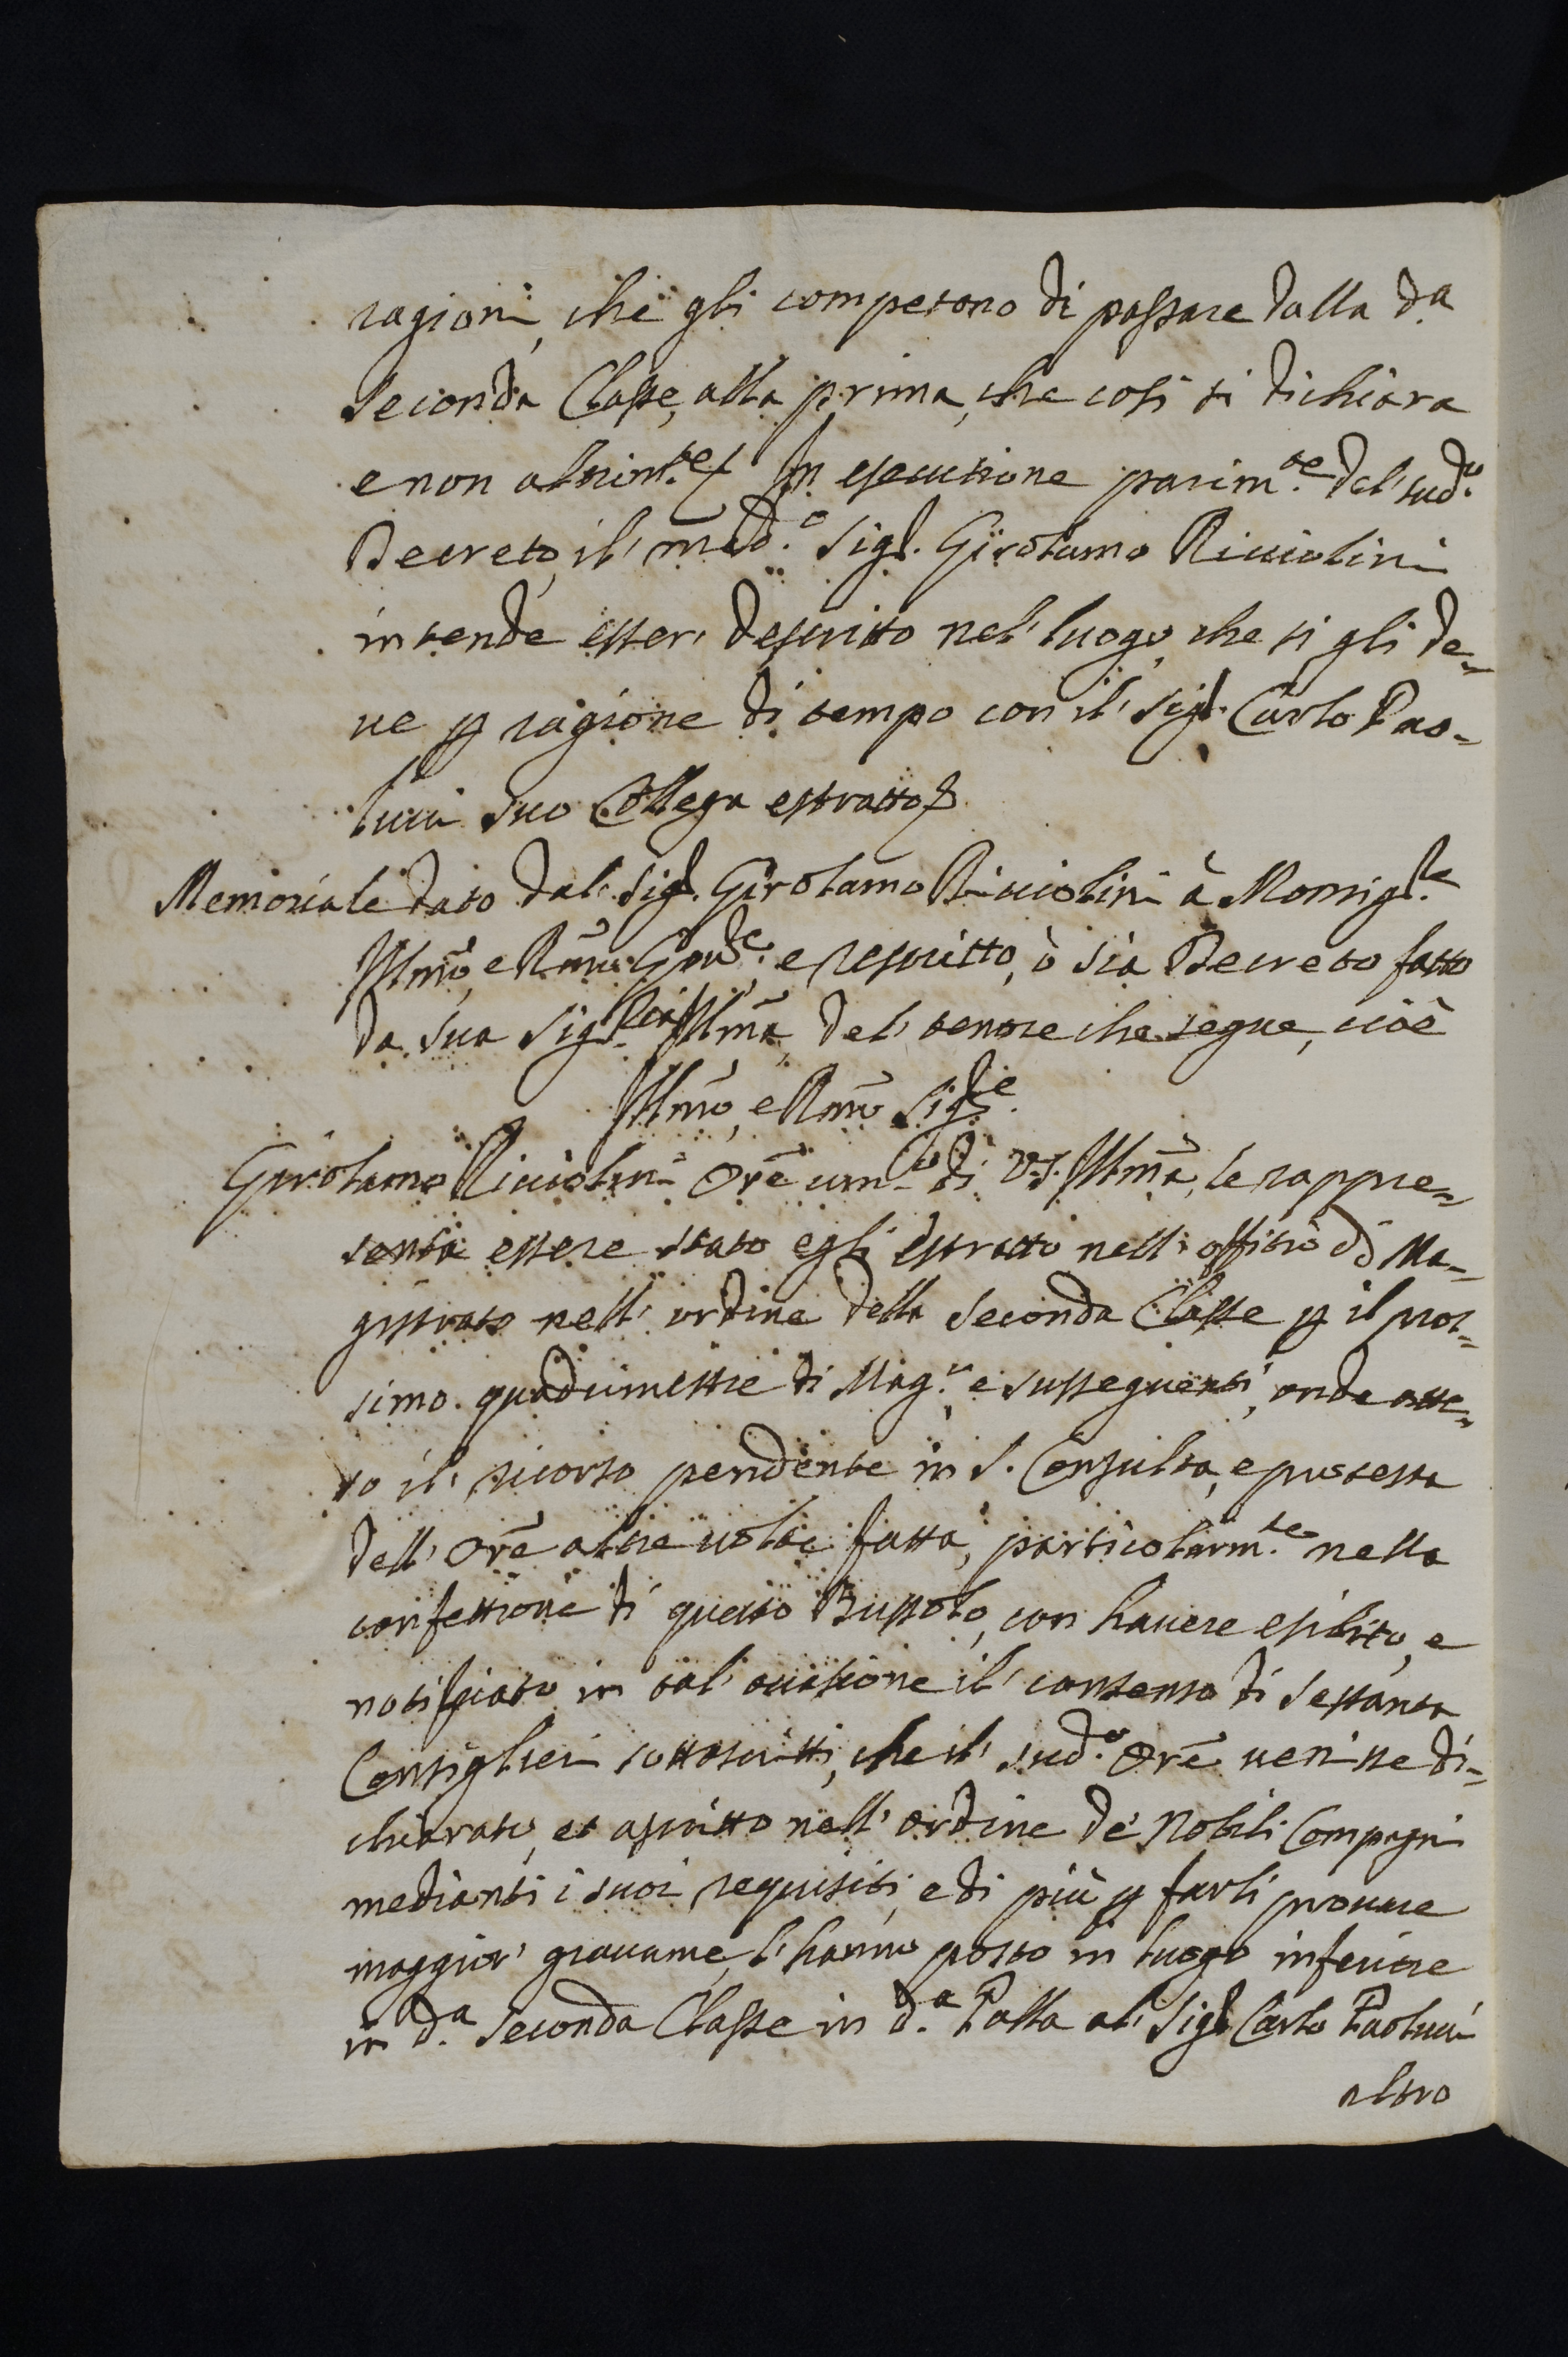 ragioni, che gli competono di passare dalla d.a
seconda Classe, alla prima, che così si dichiara
e non altrim.te In esecutione parim.te del sud.o
Decreto, il med.o Sig.r Girolamo Ricciolini
intende esser' descritto nel' luogo, che si gli de=
ue p ragione di tempo con il' Sig.r Carlo Pao=
lucci suo Collega estratto
Memoriale dato dal' Sig.r Girolamo Ricciolini à Monsig.re
Illmo, e Rmo Gou.re e rescritto, ò sia Decreto fatto
da sua Sig.ria Illma, del' tenore che segue, cioè
Illmo, e Rmo Sig.re
Girolamo Ricciolini Ore um.o di V.S. Illma, le rappre=
senta essere stato egli estratto nell' offitio di Ma=
gistrato nell' ordine della seconda Classe p il pros=
simo quadrimestre di Mag.o e susseguenti, onde atte=
so il' ricorso pendente in S. Consulta, e protesta
dell' Ore altre uolte fatta, particolarm.te nella
confettione di questo Bussolo, con hauere esibito, e
notificato in tal' occasione il' consenso di sessanta
Consiglieri sottoscritti, che il' sud.o Ore uenisse di=
chiarato, et ascritto nell' ordine de' Nobili Compagni
medianti i suoi requisiti, e di più p farli prouare
maggior' grauame, l'hanno posto in luogo inferiore
in d.a seconda Classe in d.a Palla al' Sig.r Carlo Paolucci
altro